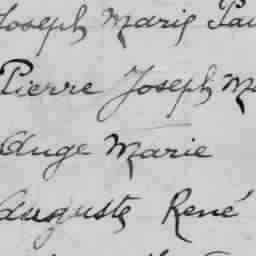 Joseph Marie Pau
Pierre Joseph Ma
Ange Marie
Auguste René